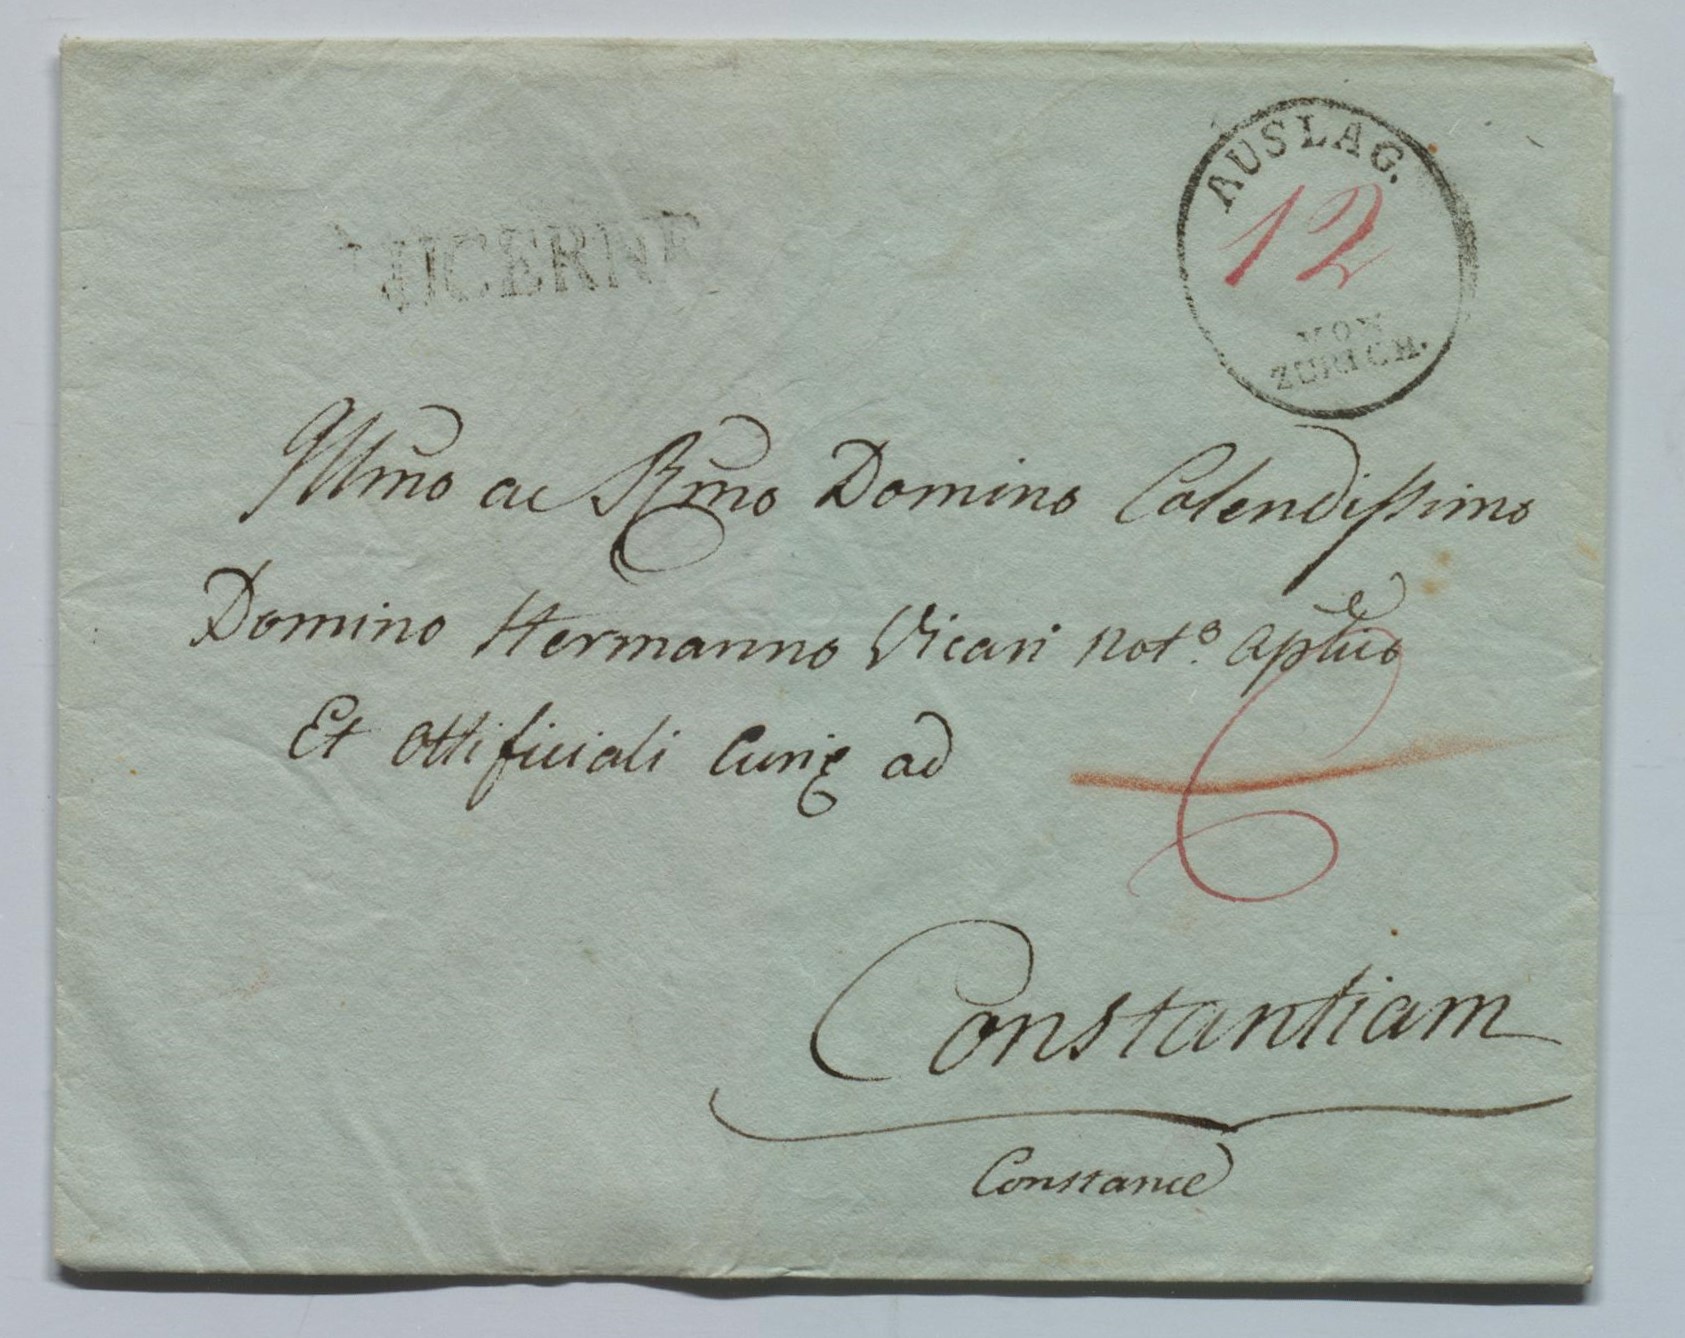 LUCERNE
AUSLAG.
12
VON
ZÜRICH.
Illmo ac Rmo Domino Colendissimo
Domino Hermanno Vicari Not.º aplico
Et Officiali Curię ad
Constantiam
Constance